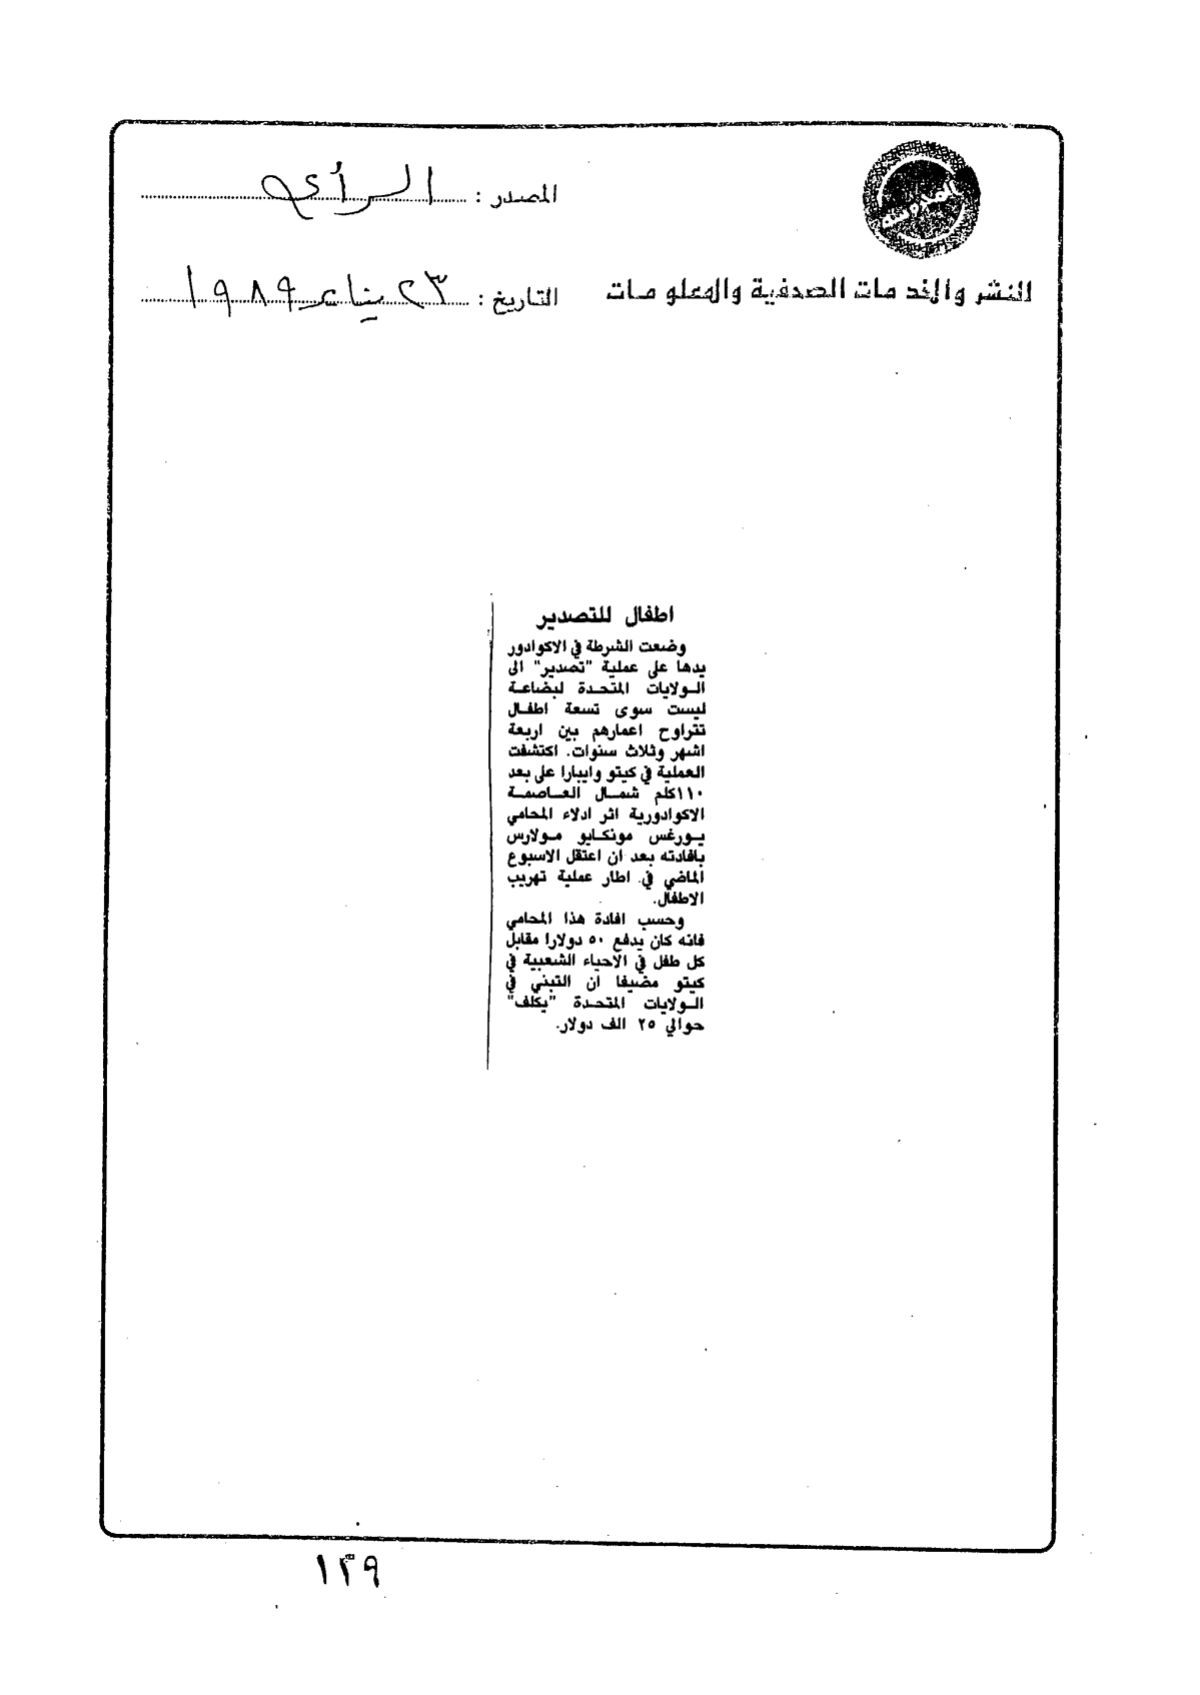 المصدر : الرأي
للنشر والخدمات الصحفية والمعلومات
التاريخ : ٢٣ يناير ١٩٨٩
اطفال للتصدير
وضعت الشرطة في الاكوادور
يدها على عملية "تصدير" الى
الـولايات المتحدة لبضاعة
ليست سوى تسعة اطفال
تتراوح اعمارهم بين اربعة
اشهر وثلاث سنوات. اكتشفت
العملية في كيتو وايبارا على بعد
١١٠كلم شمال العاصمة
الاكوادورية اثر ادلاء المحامي
يورغس مونكايو مولارس
بافادته بعد ان اعتقل الاسبوع
الماضي في اطار عملية تهريب
الاطفال.
وحسب افادة هذا المحامي
فانه كان يدفع ٥٠ دولارا مقابل
كل طفل في الاحياء الشعبية في
كيتو مضيفا ان التبني في
الـولايات المتحدة "يكلف"
حوالي ٢٥ الف دولار.